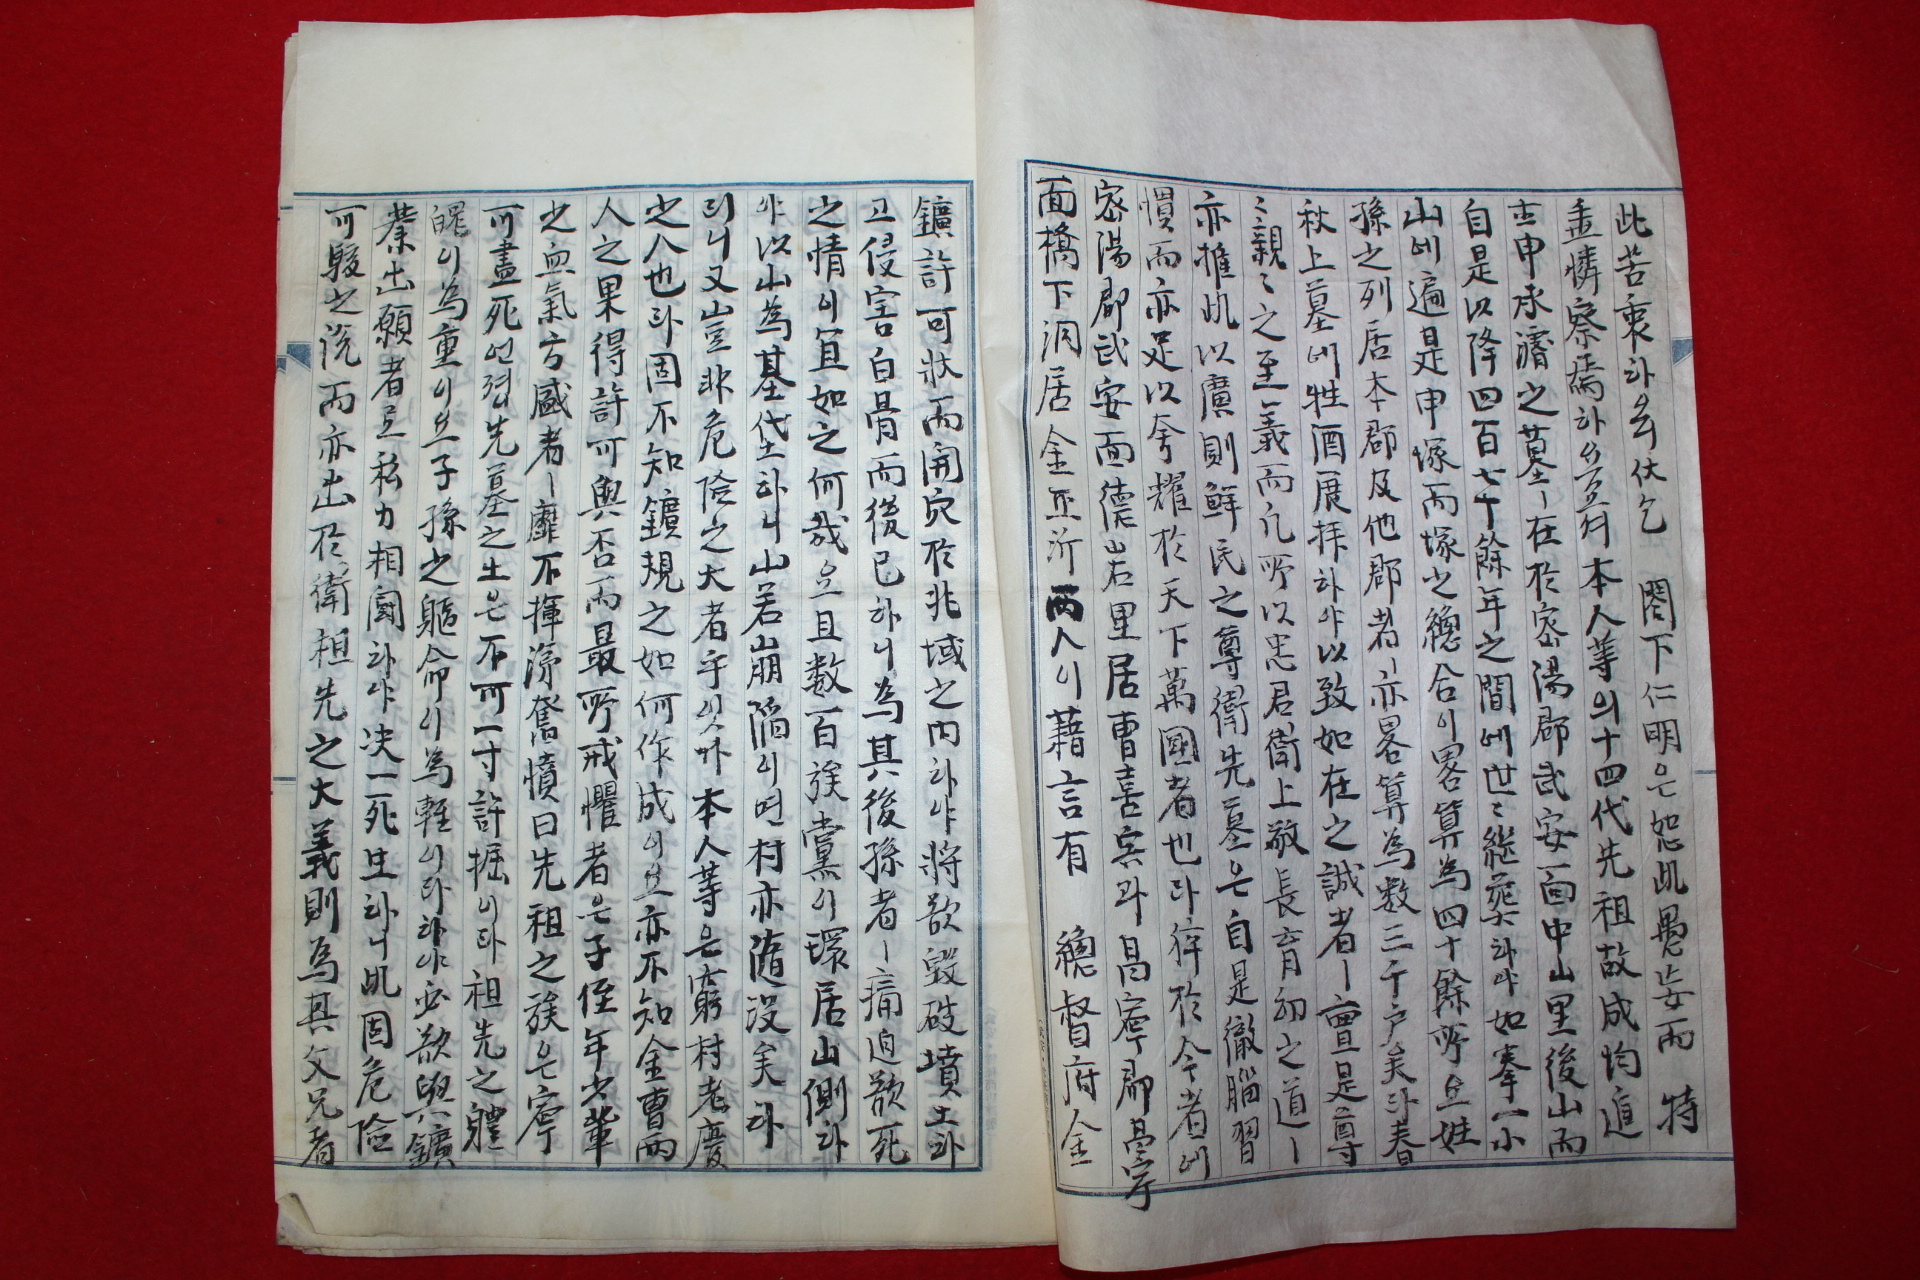 此苦衷하쇼셔伏乞 閤下仁明은恕此愚妄而 特
垂憐察焉하쇼셔本人等의十四代先祖故成均進
士申承濬之墓ㅣ在於密陽郡武安面中山里後山而
自是以降四百七十餘年之間에世〻繼葬하야如拳一小
山에遍是申塚而塚之總合이畧算為四十餘所오姓
孫之列居本郡及他郡者ㅣ亦畧算為数三千户矣라春
秋上墓에牲酒展拜하야以致如在之誠者ㅣ亶是尊
〻親〻之至義而凡所以忠君衛上敬長育幼之道ㅣ
亦推此以廣則鮮民之尊衛先墓은自是徹腦習
慣而亦足以夸耀於天下萬國者也라痒於今者에
密陽郡武安面德岩里居曺喜宾과昌寧郡昌寧
面橋下洞居金正沂両人이藉言有 總督府金
鑛許可狀而開穴於兆域之内하야將欲毀破墳土하
고侵害白骨而後已하니為其後孫者ㅣ痛迫欲死
之情이宜如之何哉오且数百族黨이環居山側하
야以山為基代土하니山若崩陷이면村亦随没矣라
더니又豈非危险之大者乎잇가本人等은窮村老度
之人也라固不知鑛規之如何作成이오亦不知金曺兩
人之果得許可與否而最所戒懼者은子侄年少輩
之血氣方盛者ㅣ靡不揮涕奮憤曰先祖之族은寧
可盡死언정先墓之土은不可一寸許掘이라祖先之體
魄이為重이오子孫之軀命이為輕이라하야必欲與鑛
業出願者로私力相鬪하야决一死生하니此固危險
可駭之說而亦出於衛祖先之大義則為其父兄者